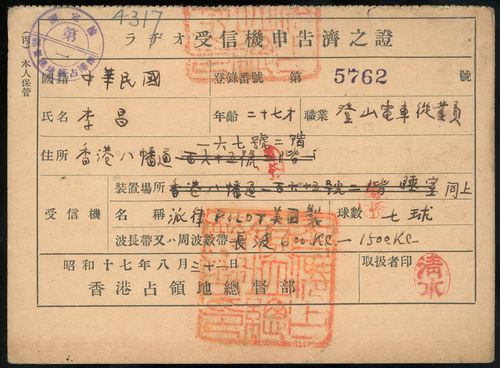 4317
ラヂオ受信機申告濟之證
(丙) 本人保管
國籍 中華民國 登錄番號 第 5762 號
氏名 李昌 年齡 二十七才 職業 登山電車從業員
一六七號二階
住所 香港八幡通一百六十五號二階
裝置場所 香港八幡通一百六十五號二階 睡室 同上
受信機 名稱 派律PILOT美國製 球數 七球
波長帶又ハ周波數帶 長波600KC—1500KC
昭和十七年八月三十二日 取扱者印 清水
香港占領地總督部